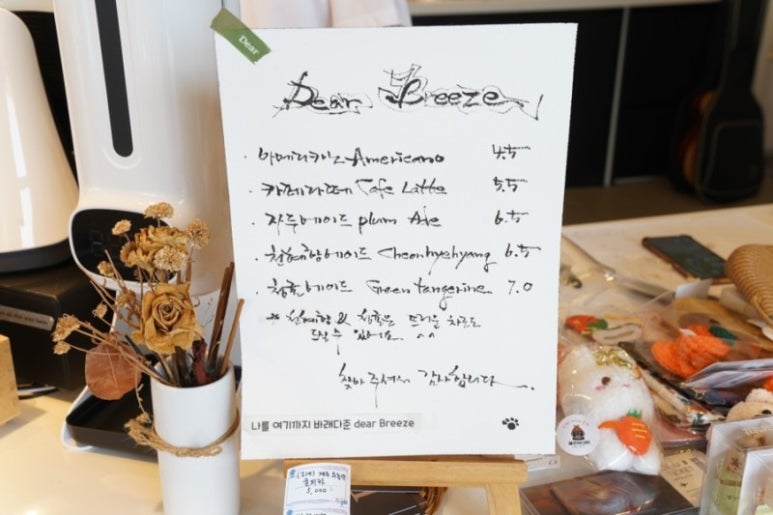 Dear
Dear Breeze
· 아메리카노 Americano 4.5
· 카페라떼 Cafe Latte 5.5
· 자두에이드 plum Ade 6.5
· 천혜향에이드 Cheonhyehyang 6.5
· 청귤에이드 Green tangerine 7.0
* 천혜향 & 청귤은 뜨거운 차로도
드실 수 있어요 ^^
찾아 주셔서 감사합니다.
나를 여기까지 바래다준 dear Breeze
5,000